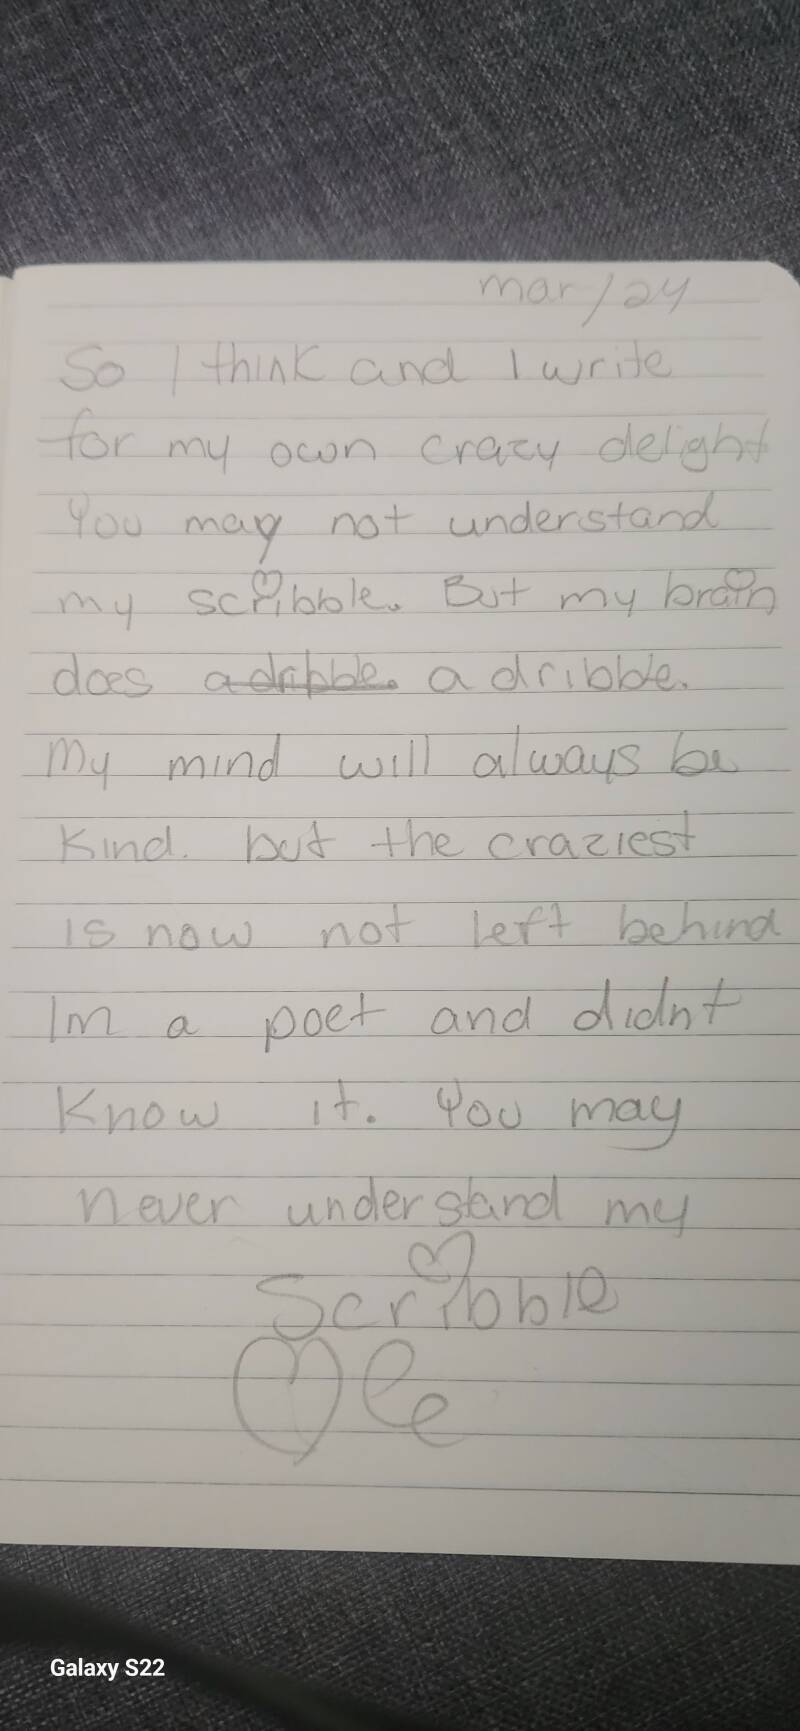 mar/24
So I think and I write
for my own crazy delight
You may not understand
my scribble. But my brain
does adribble. a dribble.
My mind will always be
Kind. but the craziest
is now not left behind
Im a poet and didnt
Know it. You may
never understand my
Scribble
Galaxy S22